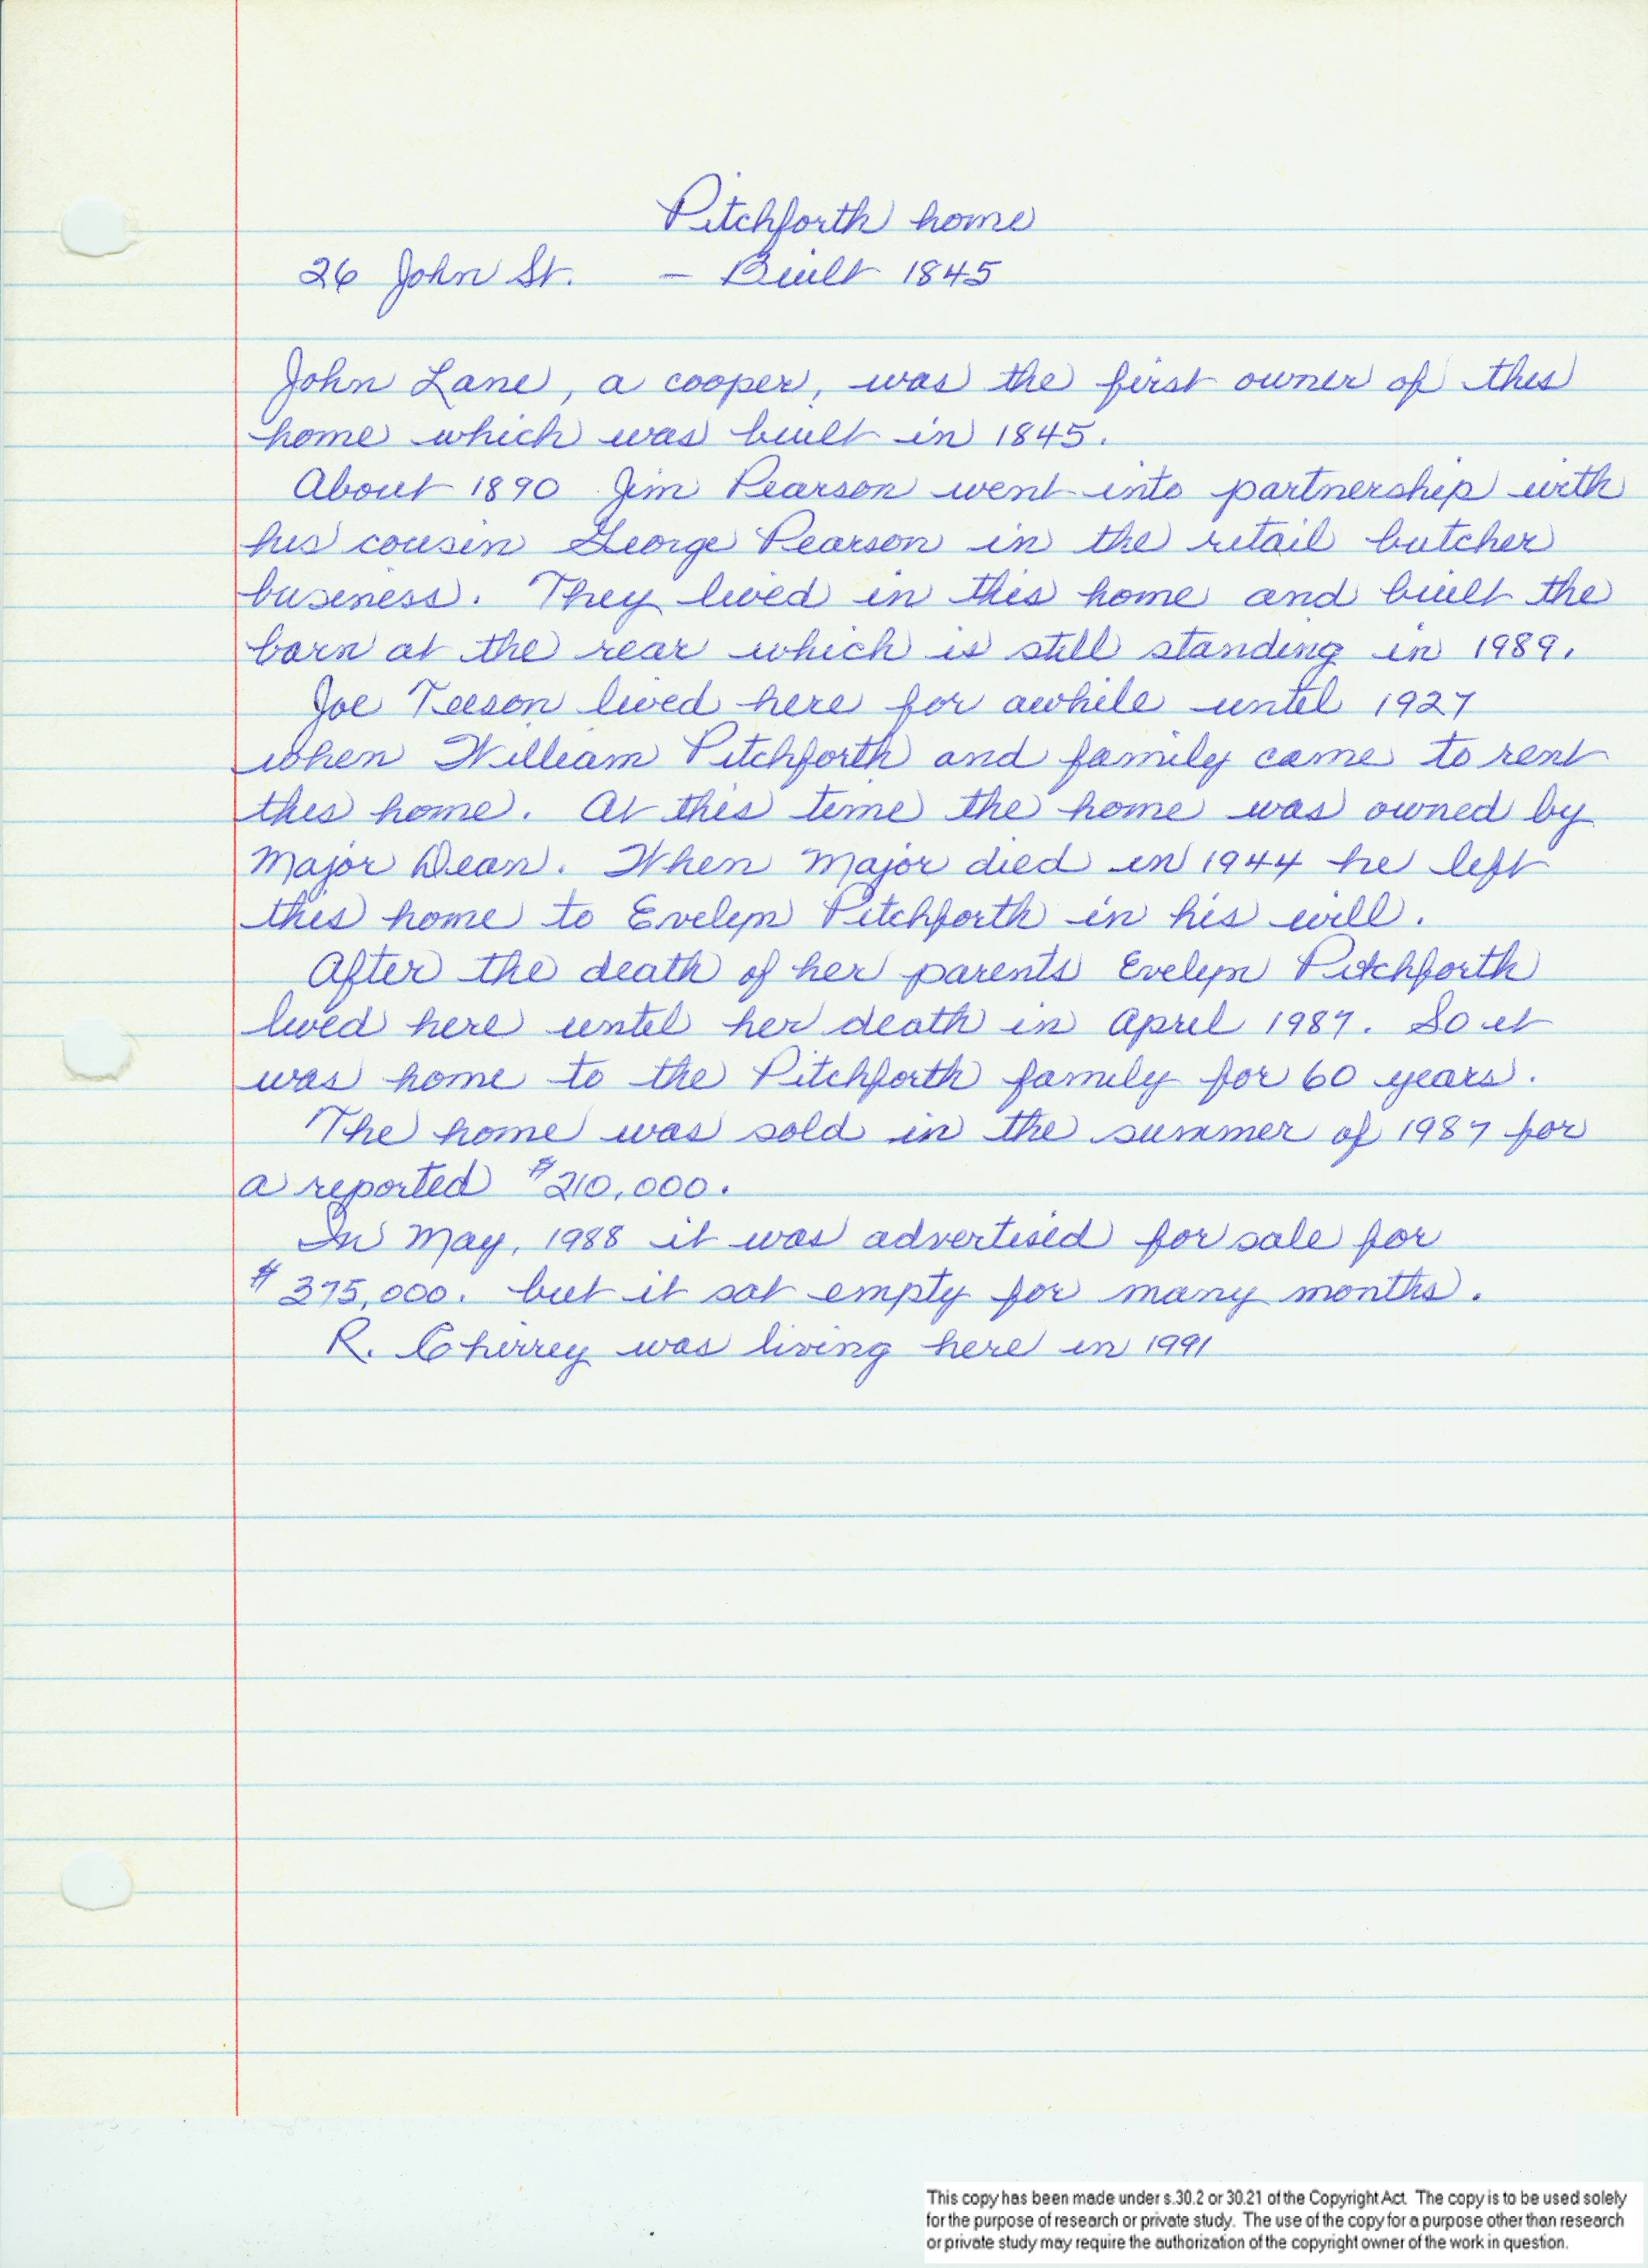 Pitchforth home
26 John St. - Built 1845
John Lane, a cooper, was the first owner of this
home which was built in 1845.
About 1890 Jim Pearson went into partnership with
his cousin George Pearson in the retail butcher
business. They lived in this home and built the
barn at the rear which is still standing in 1989.
Joe Teeson lived here for awhile until 1927
when William Pitchforth and family came to rent
this home. At this time the home was owned by
Major Dean. When Major died in 1944 he left
this home to Evelyn Pitchforth in his will.
After the death of her parents Evelyn Pitchforth
lived here until her death in April 1987. So it
was home to the Pitchforth family for 60 years.
The home was sold in the summer of 1987 for
a reported $210,000.
In May, 1988 it was advertised for sale for
$375,000. but it sat empty for many months.
R. Cherrey was living here in 1991
This copy has been made under s.30.2 or 30.21 of the Copyright Act. The copy is to be used solely
for the purpose of research or private study. The use of the copy for a purpose other than research
or private study may require the authorization of the copyright owner of the work in question.